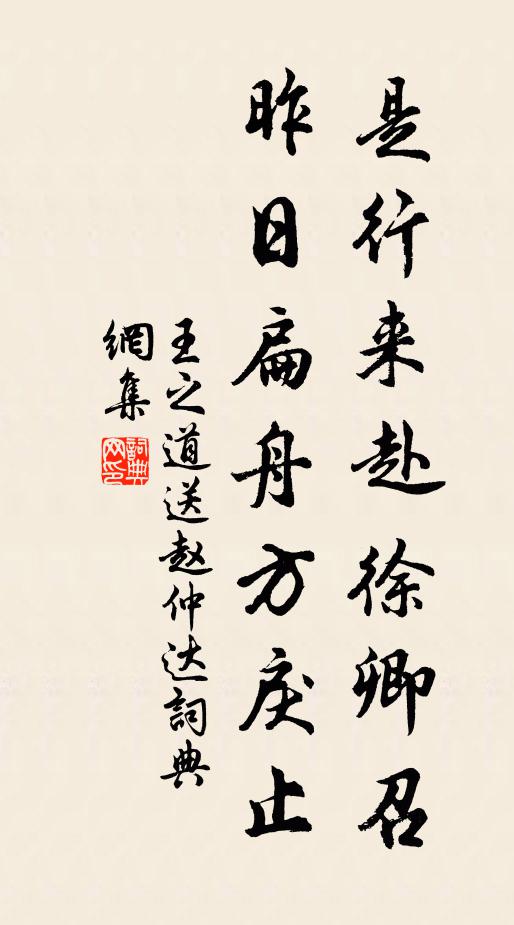 是行来赴徐卿召
昨日扁舟方戾止
王之道送赵仲达詞典
網集
詞典网印